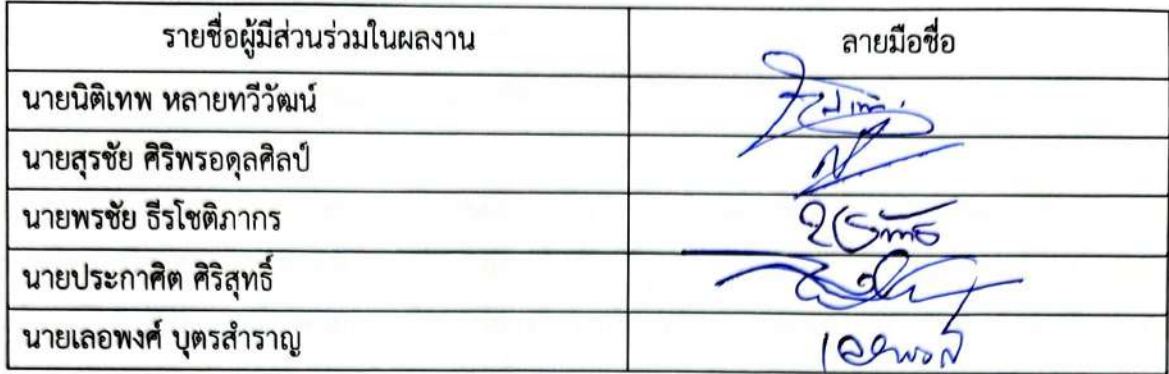 รายชื่อผู้มีส่วนร่วมในผลงาน ลายมือชื่อ
นายนิติเทพ หลายทวีวัฒน์
นายสุรชัย ศิริพรอดุลศิลป์
นายพรชัย ธีรโชติภากร
นายประกาศิต ศิริสุทธิ์
นายเลอพงศ์ บุตรสำราญ